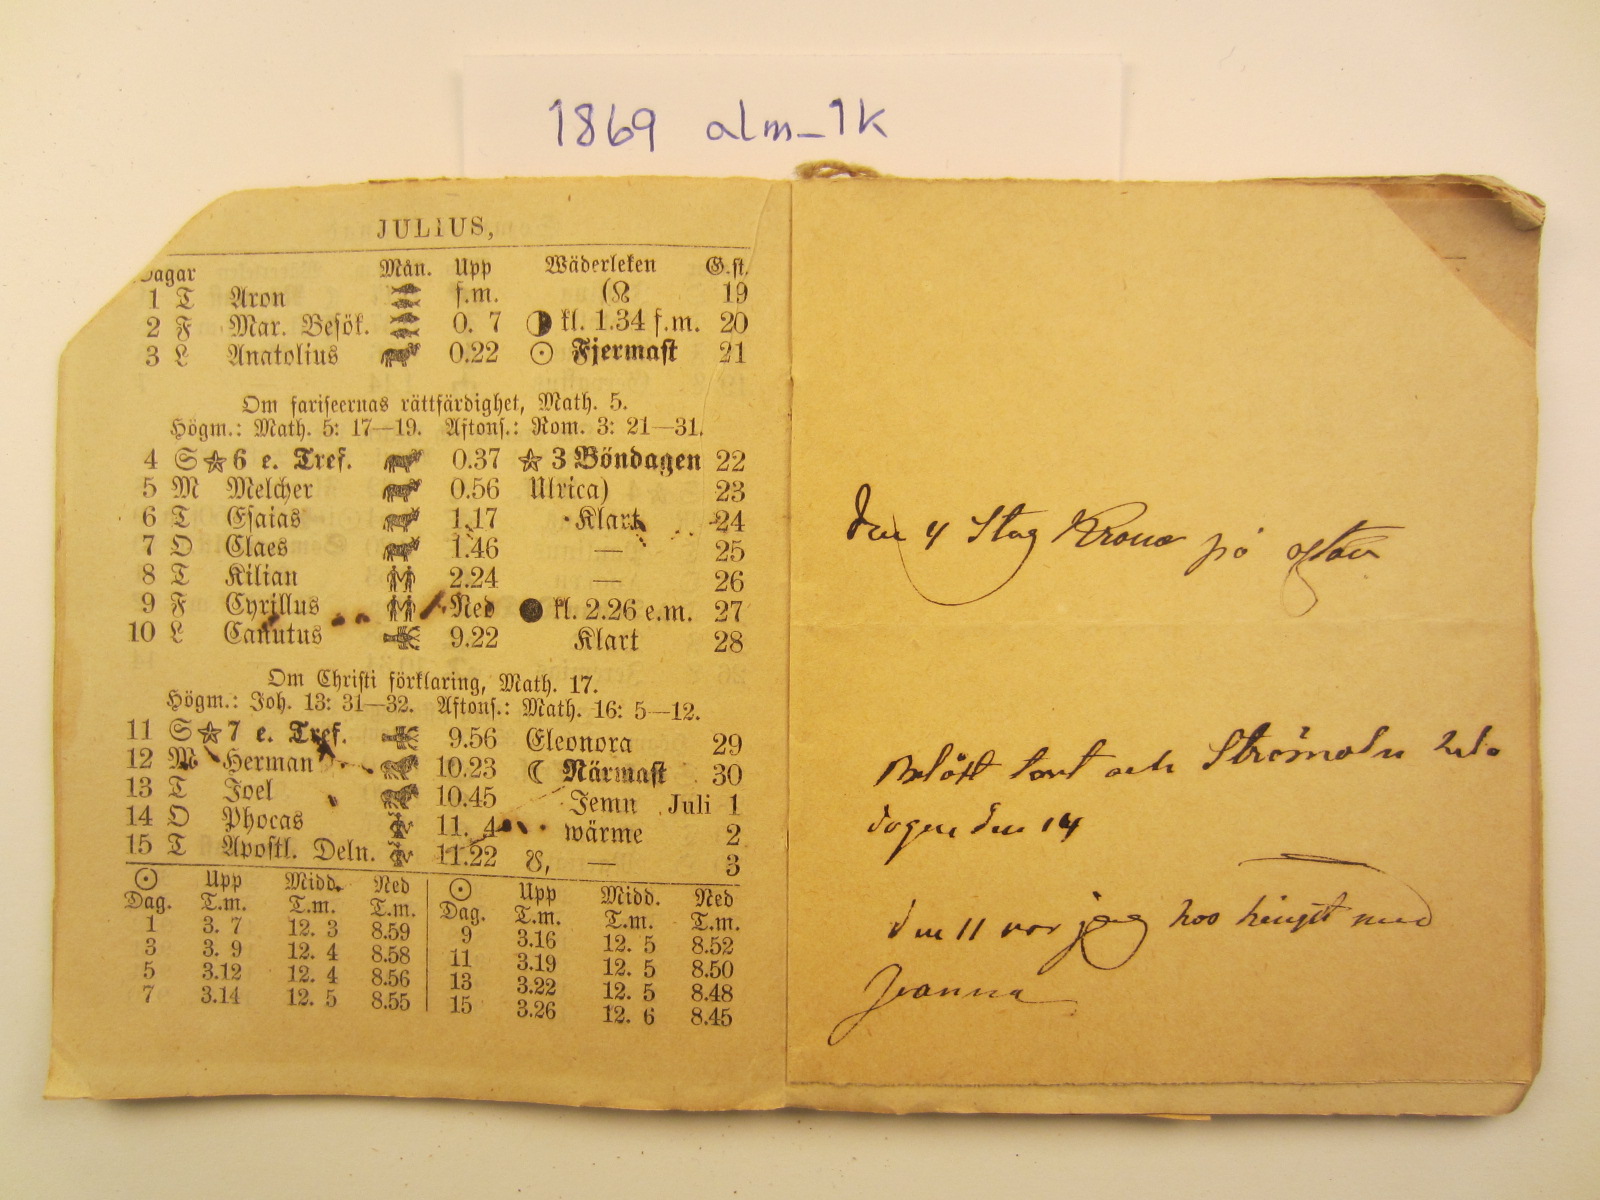 1869 alm_1k
JULIUS,
Dagar Mån. Upp Wäderleken G.st.
1 T Aron f.m. (☊ 19
2 F Mar. Besök. 0. 7 ◑ kl. 1.34 f.m. 20
3 L Anatolius 0.22 ☉ Fjermast 21
Om fariseernas rättfärdighet, Math. 5.
Högm.: Math. 5: 17—19. Aftons.: Rom. 3: 21—31.
4 S ☆ 6 e. Tref. 0.37 ☆ 3 Böndagen 22
5 M Melcher 0.56 Ulrica) 23
6 T Esaias 1.17 Klart 24
7 O Claes 1.46 — 25
8 T Kilian 2.24 — 26
9 F Cyrillus Ned ● kl. 2.26 e.m. 27
10 L Canutus 9.22 Klart 28
Om Christi förklaring, Math. 17.
Högm.: Joh. 13: 31—32. Aftons.: Math. 16: 5—12.
11 S ☆ 7 e. Tref. 9.56 Eleonora 29
12 M Herman 10.23 ☾ Närmast 30
13 T Joel 10.45 Jemn Juli 1
14 O Phocas 11. 4 wärme 2
15 T Apostl. Deln. 11.22 ☋, — 3
☉ Upp Midd. Ned ☉ Upp Midd. Ned
Dag. T.m. T.m. T.m. Dag. T.m. T.m. T.m.
1 3. 7 12. 3 8.59 9 3.16 12. 5 8.52
3 3. 9 12. 4 8.58 11 3.19 12. 5 8.50
5 3.12 12. 4 8.56 13 3.22 12. 5 8.48
7 3.14 12. 5 8.55 15 3.26 12. 6 8.45
den 4 Stog på aftan
och hela
dagen den 14
den 11 var jag hos med
Jeanna